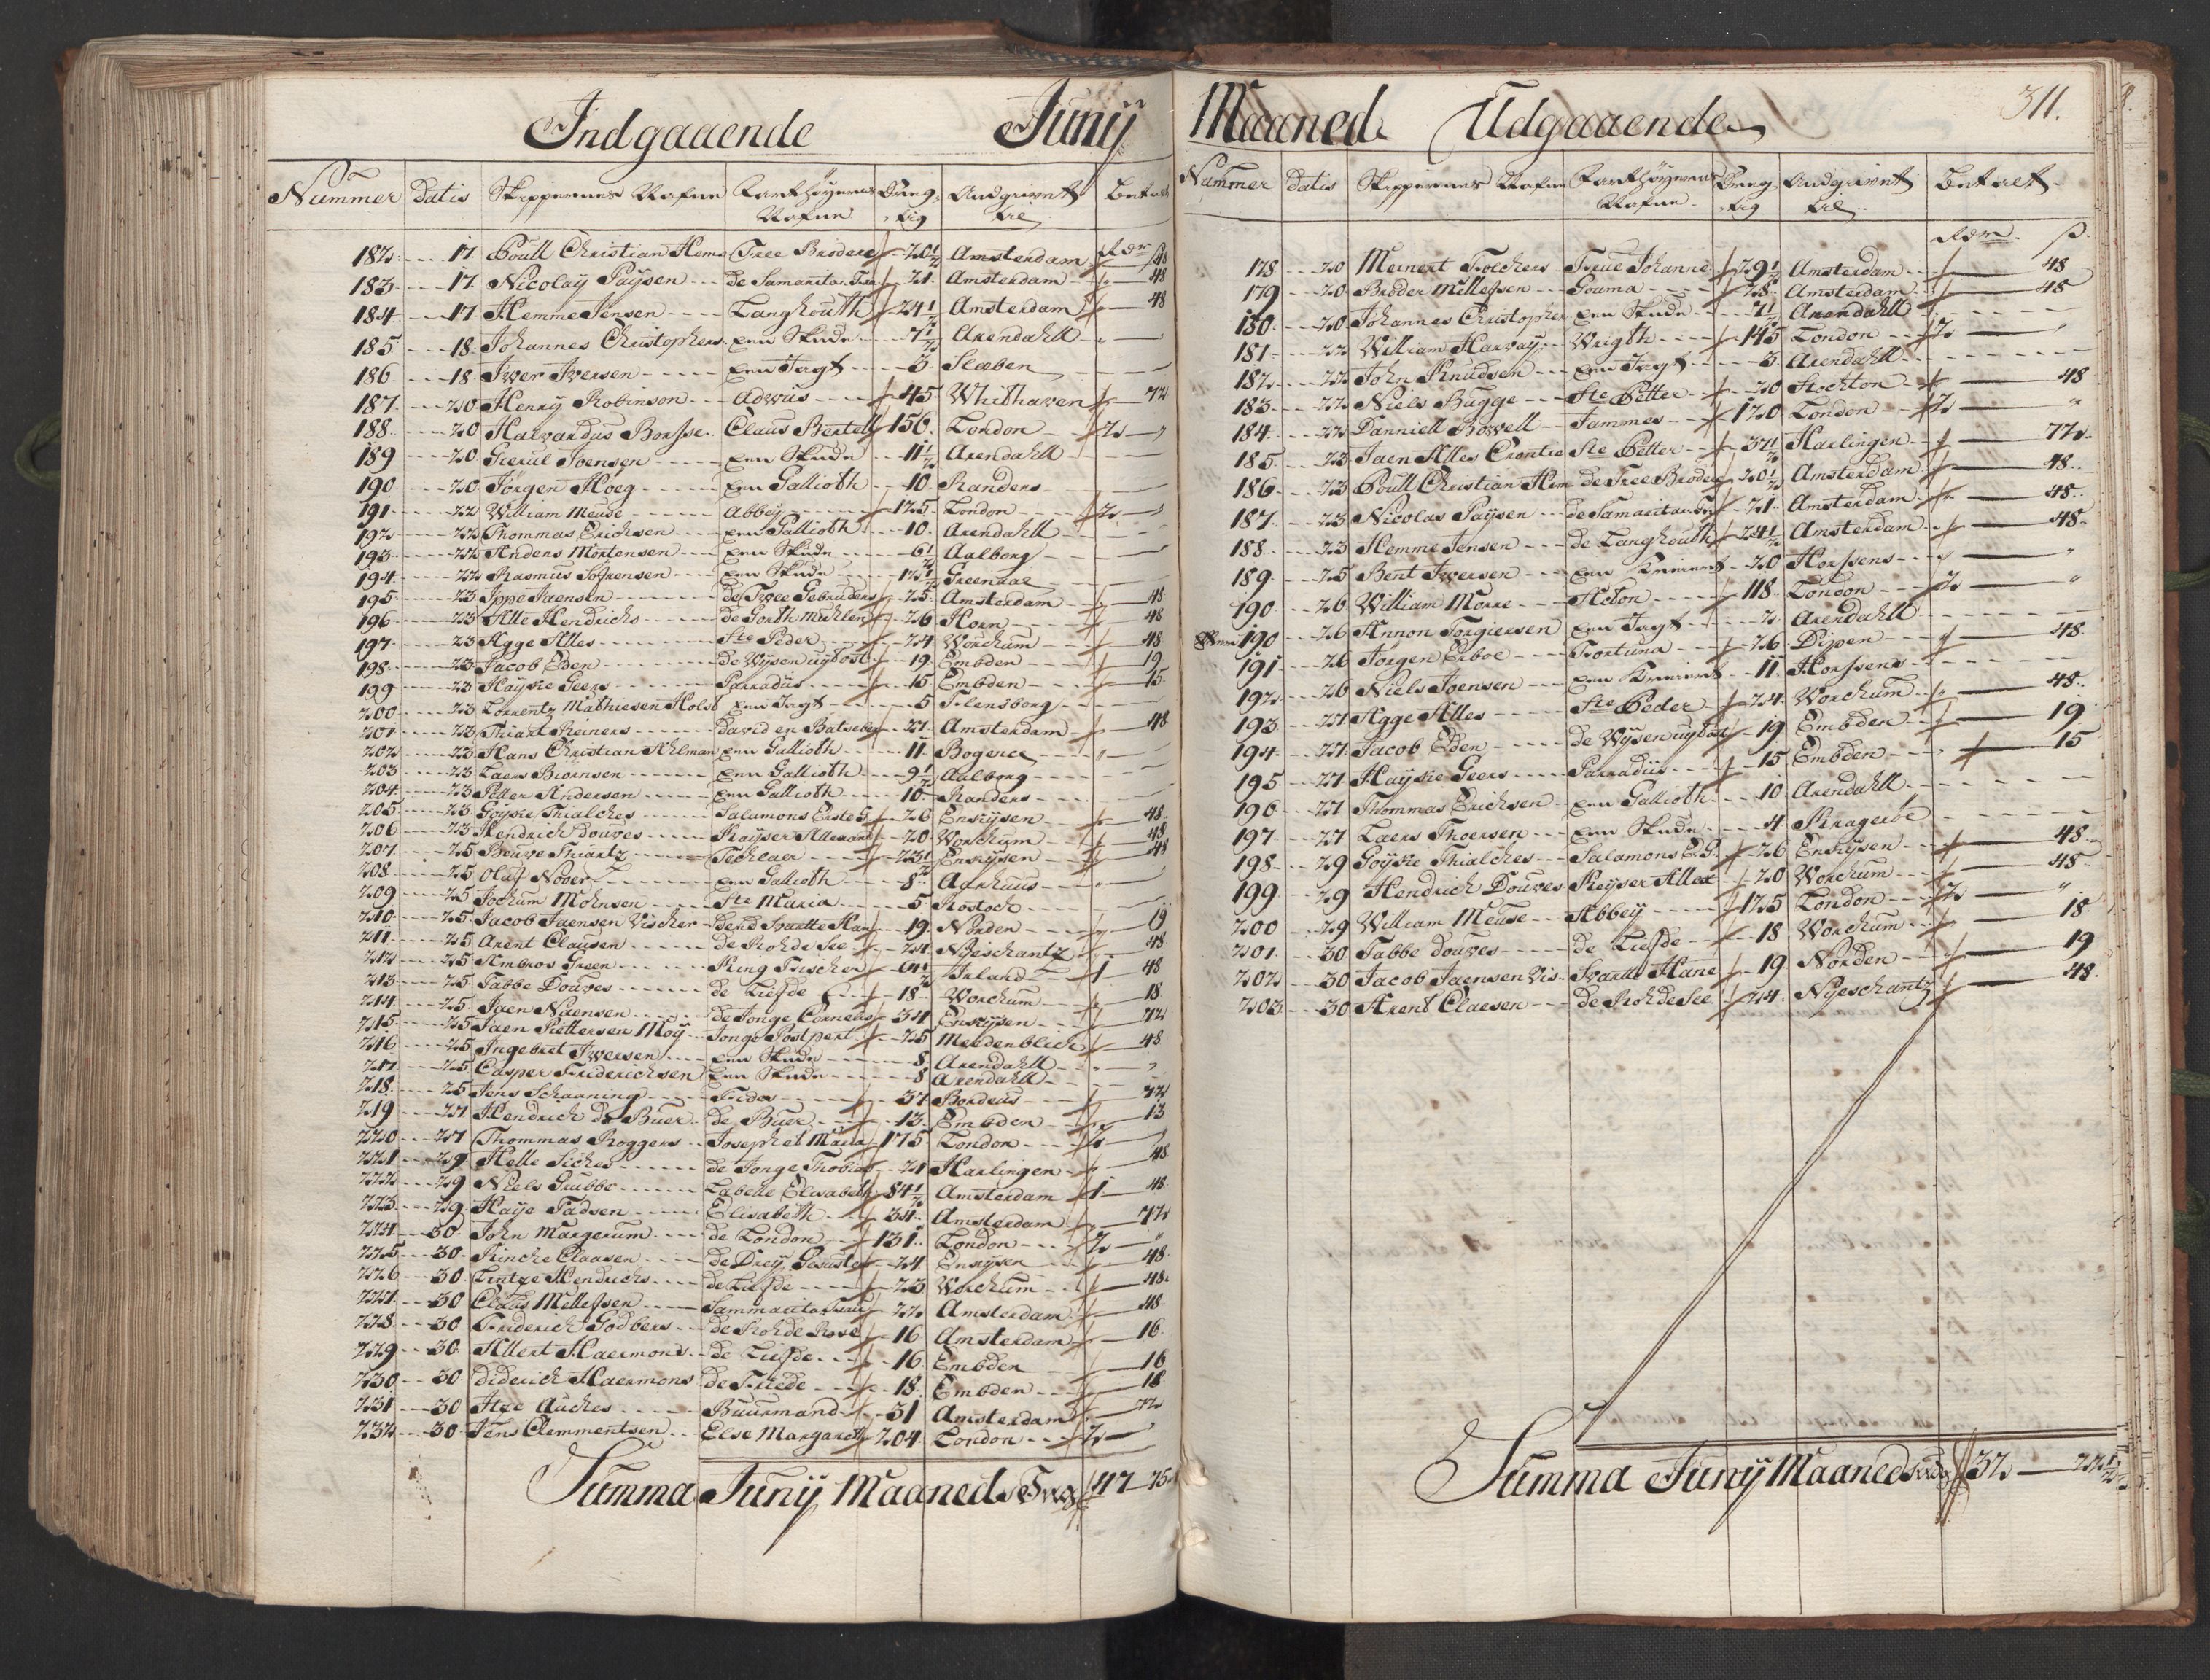 Indgaaende Junij
Nummer datis Skippernes Nafne Farthöyernes Nafne Dreg,tig Andgivent til Betalt
Rdr ß
182 17 Poull Christian Hems Tree Brödere 20½ Amsterdam 48
183 17 Nicolaij Paÿsen de Samarita 21 Amsterdam 48
184 17 Hemme Jensen Langhouth 24½ Amsterdam 48
185 18 Johannes Christophers een Skude 7½ Arendahll
186 18 Iwer Iversen een Jagt 3 Scæben
187 20 Henry Robinson Adwiis 45 Whithaven 72
188 20 Halvardus Borsse Claus Bertell 156 London 2
189 20 Gierul Joensen een Skude 11½ Arendahll
190 20 Jörgen Hoeg een Gallioth 10 Randers
191 22 William Meuse Abbeij 125 London 2
192 22 Thommas Erichsen een Gallioth 10 Arendahll
193 22 Anders Mortensen een Skude 6½ Aalborg
194 22 Rasmus Söfrensen een Skude 12½ Greenaae
195 23 Ippe Jaensen de Twee Gebruders 25 Amsterdam 48
196 23 Alle Hendrichs de Gorth Muhlen 26 Horn 48
197 23 Agge Alles Ste Peder 24 Worchum 48
198 23 Jacob Eden de Wÿsen uÿt ost 19 Embden 19
199 23 Haÿske Geers Parradiis 15 Embden 15
200 23 Lorrentz Mathiesen Holst een Jagt 5 Flensborg
201 23 Thiart Reiners david en Batseba 27 Amsterdam 48
202 23 Hans Christian Ahlman een Gallioth 11 Bogence
203 23 Laers Biörnsen een Gallioth 9½ Aalborg
204 23 Petter Andersen een Gallioth 10 Randers
205 23 Goÿske Thialches Salamons Erste G 26 Enkÿsen 48
206 23 Hendrich Douwes Kaÿser Allexand 20 Worchum 48
207 25 Bouwe Thiartz Techlaer 23½ Enkÿsen 48
208 25 Oluf Nooer een Gallioth 8 Aarhuus
209 25 Jochum Mohnsen Ste Maria 5 Rostoch
210 25 Jacob Jaensen Vischer dend Svartte Han 19 Norden 19
211 25 Arent Clausen de Rohde See 24 Nÿeschantz 48
212 25 Ambros Green King Fischer 61½ Irland 1 48
213 25 Tabbe Douwes de Liefde 18 Worchum 18
214 25 Jaen Naensen de Jonge Cornelis 34 Enkÿsen 72
215 25 Jaen Piettersen Moÿ Jonge Postpert 25 Meidenblich 48
216 25 Ingebret Iwersen een Skude 8 Arendahll
217 25 Casper Friderichsen een Skude 8 Arendahll
218 25 Jens Schanning Fides 37 Bordeus 72
219 27 Hendrich de Buer de Buer 13 Embden 13
220 27 Thommas Roggers Joseph et Maria 175 London 2
221 29 Helle Siches de Jonge Thobias 21 Harlingen 48
222 29 Niels Grubbe Labelle Elisabeth 84½ Amsterdam 1 48
223 29 Haÿe Tadsen Elisabeth 34 Amsterdam 72
224 30 John Margerum de London 131 London 2
225 30 Rinche Claasen de Dreÿ Gesuster 24 Enkÿsen 48
226 30 Lintze Hendrichs de Liefde 23 Worchum 48
227 30 Claus Mellefsen Sammarita 22 Amsterdam 48
228 30 Friderich Godbers de Rohde Rose 16 Amsterdam 16
229 30 Allert Haermons de Liefde 16 Embden 16
230 30 Diderich Haermons de Friede 18 Embden 18
231 30 Itze Auches Buurmand 31 Amsterdam 72
232 30 Jens Clemmentsen Else Margareth 204 London 2
Summa Junij Maaned 47
Maaned Udgaaende 311.
Nummer datis Skippernes Nafne Farthöyernes Nafne Dreg,tig Andgivent til Betalt
Rdr ß
178 20 Meinert Folchers Frue Johanne 29½ Amsterdam 48
179 20 Broder Mellefsen Gouma 28 Amsterdam 48
180 20 Johannes Christopher een Skude 7½ Arendahll
181 22 William Harvaÿ Wrigth 145 London 2
182 22 John Knudsen een Jagt 3 Arendahll
183 22 Niels Bugge Ste Petter 20 Stochton 48
184 22 Danniell Bowell Jammes 120 London 2
185 23 Jaen Alles Crontie Ste Petter 37½ Harlingen 72
186 23 Poull Christian Hem de Tree Brödere 20½ Amsterdam 48
187 23 Nicolas Paÿsen de Samarita 21 Amsterdam 48
188 23 Hemme Jensen de Langhouth 24½ Amsterdam 48
189 25 Bent Iwersen een 20 Horssens
190 26 William Morre Acton 118 London 2
190 26 Annon Torgiersen een Jagt 2 Arendahll
191 26 Jörgen Erboe Fortuna 26 Dijpen 48
192 26 Niels Joensen een 11 Horssens
193 27 Agge Alles Ste Peder 24 Worchum 48
194 27 Jacob Eden de Wÿsen uÿt ost 19 Embden 19
195 27 Haÿske Geers Parradiis 15 Embden 15
196 27 Thommas Erichsen een Gallioth 10 Arendahll
197 27 Laers Thorsen een Skude 4 Krageröe
198 29 Goÿske Thialches Salamons E:G: 26 Enkÿsen 48
199 29 Hendrich Douwes Keÿser Allex 20 Worchum 48
200 29 William Meuse Abbeÿ 125 London 2
201 30 Tabbe Douwes de Liefde 18 Worchum 18
202 30 Jacob Jaensen Vis. Svartte Hane 19 Norden 19
203 30 Arent Claesen de Rohde See 24 Nÿeschantz 48
Summa Junij Maaned 32 22½